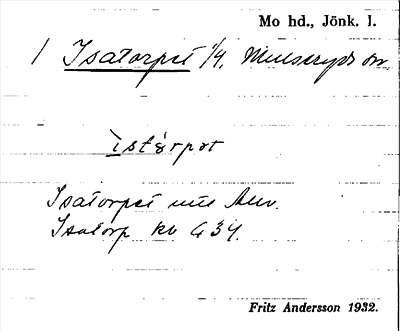 Mo hd., Jönk. l.
1 Isatorpet 1/4, Mulseryds sn
ìstó̤rpət
Isatorpet mtl Avr.
Isatorp kb G 34.
Fritz Andersson 1932.